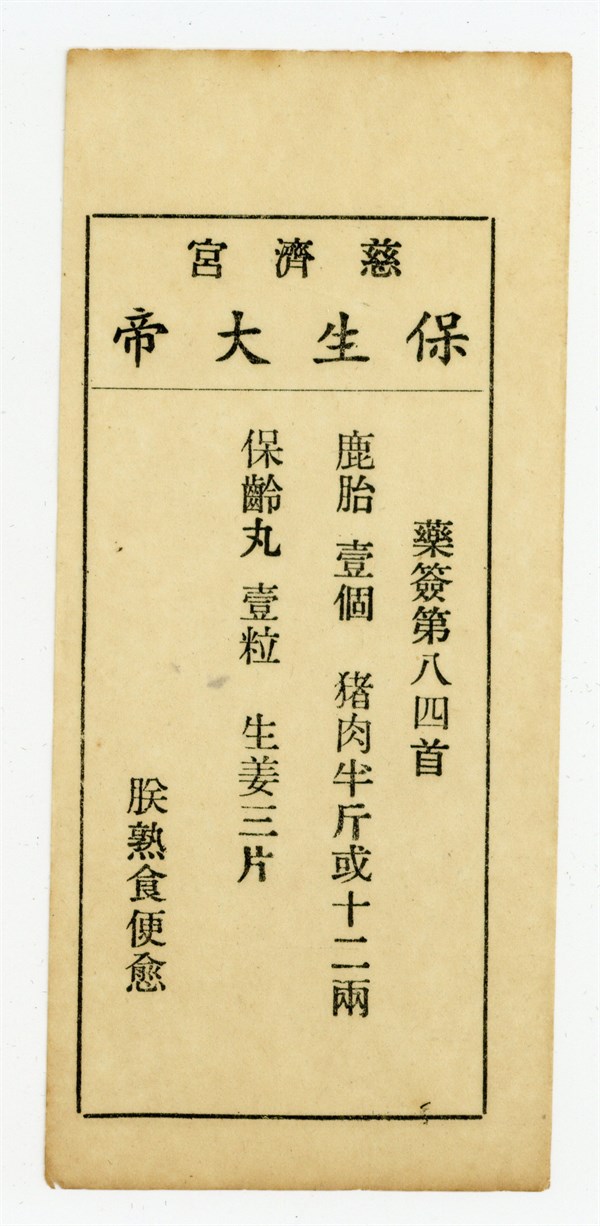 慈濟宮
保生大帝
藥簽第八四首
鹿胎 壹個 猪肉半斤或十二兩
保齡丸 壹粒 生姜三片
朕熟食便愈